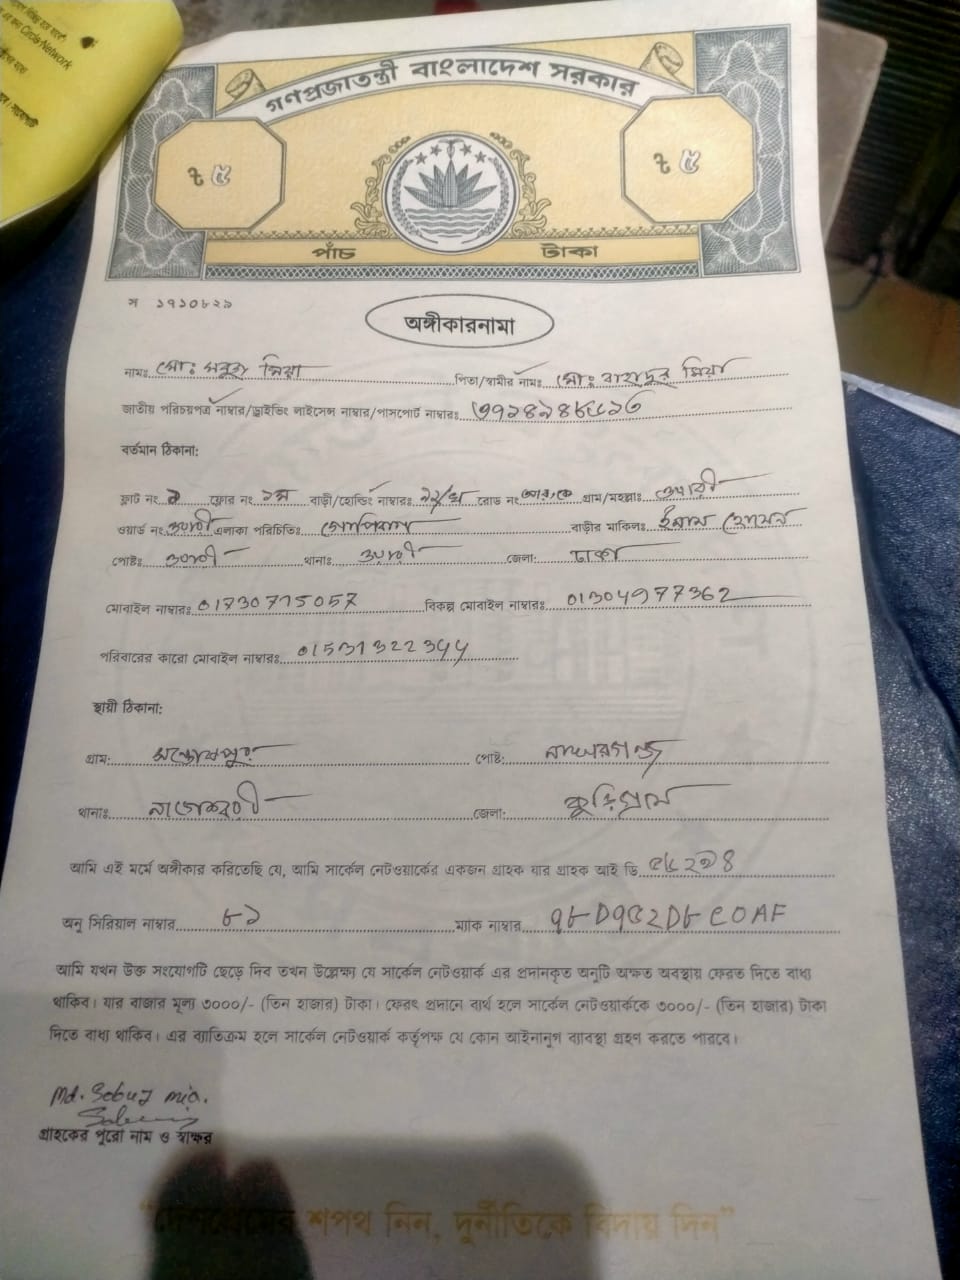 Circle Network
গণপ্রজাতন্ত্রী বাংলাদেশ সরকার
৳ ৫ ৳ ৫
পাঁচ টাকা
স ১৭১০৮২৯
অঙ্গীকারনামা
নামঃ মোঃ সবুজ মিয়া পিতা/স্বামীর নামঃ মোঃ বাহাদুর মিয়া
জাতীয় পরিচয়পত্র নাম্বার/ড্রাইভিং লাইসেন্স নাম্বার/পাসপোর্ট নাম্বারঃ
বর্তমান ঠিকানা:
ফ্লাট নং ফ্লোর নং ১ম বাড়ী/হোল্ডিং নাম্বারঃ রোড নং আর,কে গ্রাম/মহল্লাঃ
ওয়ার্ড নং এলাকা পরিচিতিঃ গোপিবাগ বাড়ীর মালিকঃ ইমাম হোসেন
পোষ্টঃ থানাঃ জেলা: ঢাকা
মোবাইল নাম্বারঃ 01730715057 বিকল্প মোবাইল নাম্বারঃ 01304977362
পরিবারের কারো মোবাইল নাম্বারঃ 01531322344
স্থায়ী ঠিকানা:
গ্রাম: সন্তোষপুর পোষ্ট:
থানাঃ নাগেশ্বরী জেলা: কুড়িগ্রাম
আমি এই মর্মে অঙ্গীকার করিতেছি যে, আমি সার্কেল নেটওয়ার্কের একজন গ্রাহক যার গ্রাহক আই ডি
অনু সিরিয়াল নাম্বার ৮১ ম্যাক নাম্বার ৭৮D৭৫২D৮E0AF
আমি যখন উক্ত সংযোগটি ছেড়ে দিব তখন উল্লেক্ষ্য যে সার্কেল নেটওয়ার্ক এর প্রদানকৃত অনুটি অক্ষত অবস্থায় ফেরত দিতে বাধ্য
থাকিব। যার বাজার মূল্য ৩০০০/- (তিন হাজার) টাকা। ফেরৎ প্রদানে ব্যর্থ হলে সার্কেল নেটওয়ার্ককে ৩০০০/- (তিন হাজার) টাকা
দিতে বাধ্য থাকিব। এর ব্যতিক্রম হলে সার্কেল নেটওয়ার্ক কর্তৃপক্ষ যে কোন আইনানুগ ব্যবস্থা গ্রহণ করতে পারবে।
Md. Sobuj mia.
গ্রাহকের পুরো নাম ও স্বাক্ষর
"দেশপ্রেমের শপথ নিন, দুর্নীতিকে বিদায় দিন"